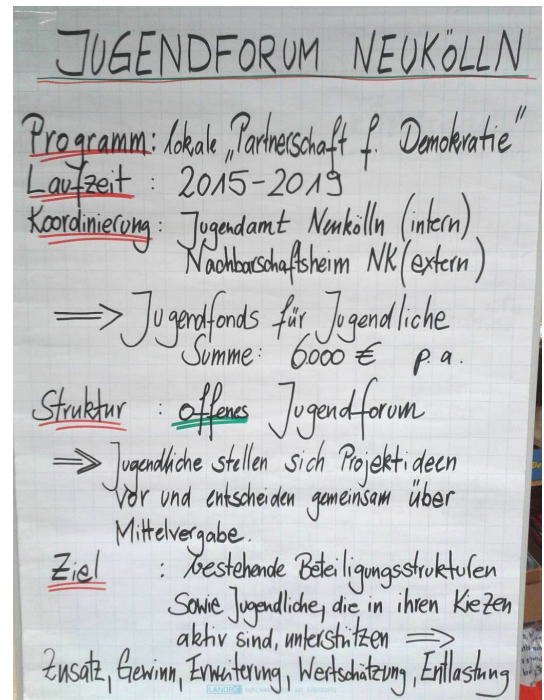 JUGENDFORUM NEUKÖLLN
Programm: lokale „Partnerschaft f. Demokratie"
Laufzeit : 2015-2019
Koordinierung: Jugendamt Neukölln (intern)
Nachbarschaftsheim NK (extern)
⟹ Jugendfonds für Jugendliche
Summe: 6000 € p.a.
Struktur : offenes Jugendforum
⟹ Jugendliche stellen sich Projektideen
vor und entscheiden gemeinsam über
Mittelvergabe.
Ziel : bestehende Beteiligungsstrukturen
sowie Jugendliche, die in ihren Kiezen
aktiv sind, unterstützen ⟹
Zusatz, Gewinn, Erweiterung, Wertschätzung, Entlastung
LANDRÉ